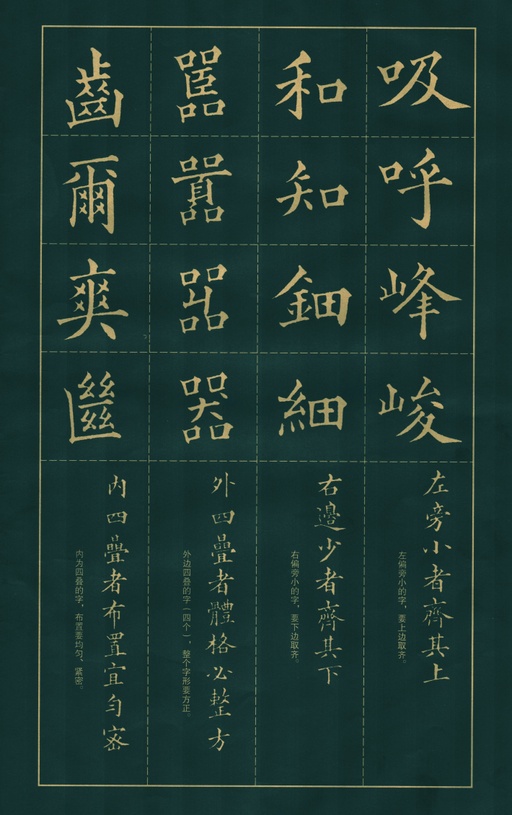 吸
呼
峰
峻
左旁小者齊其上
左偏旁小的字，要上边取齐。
和
知
鈿
細
右邊少者齊其下
右偏旁小的字，要下边取齐。
嚚
囂
㗊
器
外四疊者體格必整方
外边四叠的字（四个），整个字形要方正。
齒
爾
爽
㡭
内四疊者布置宜勻密
内为四叠的字，布置要均匀、紧密。